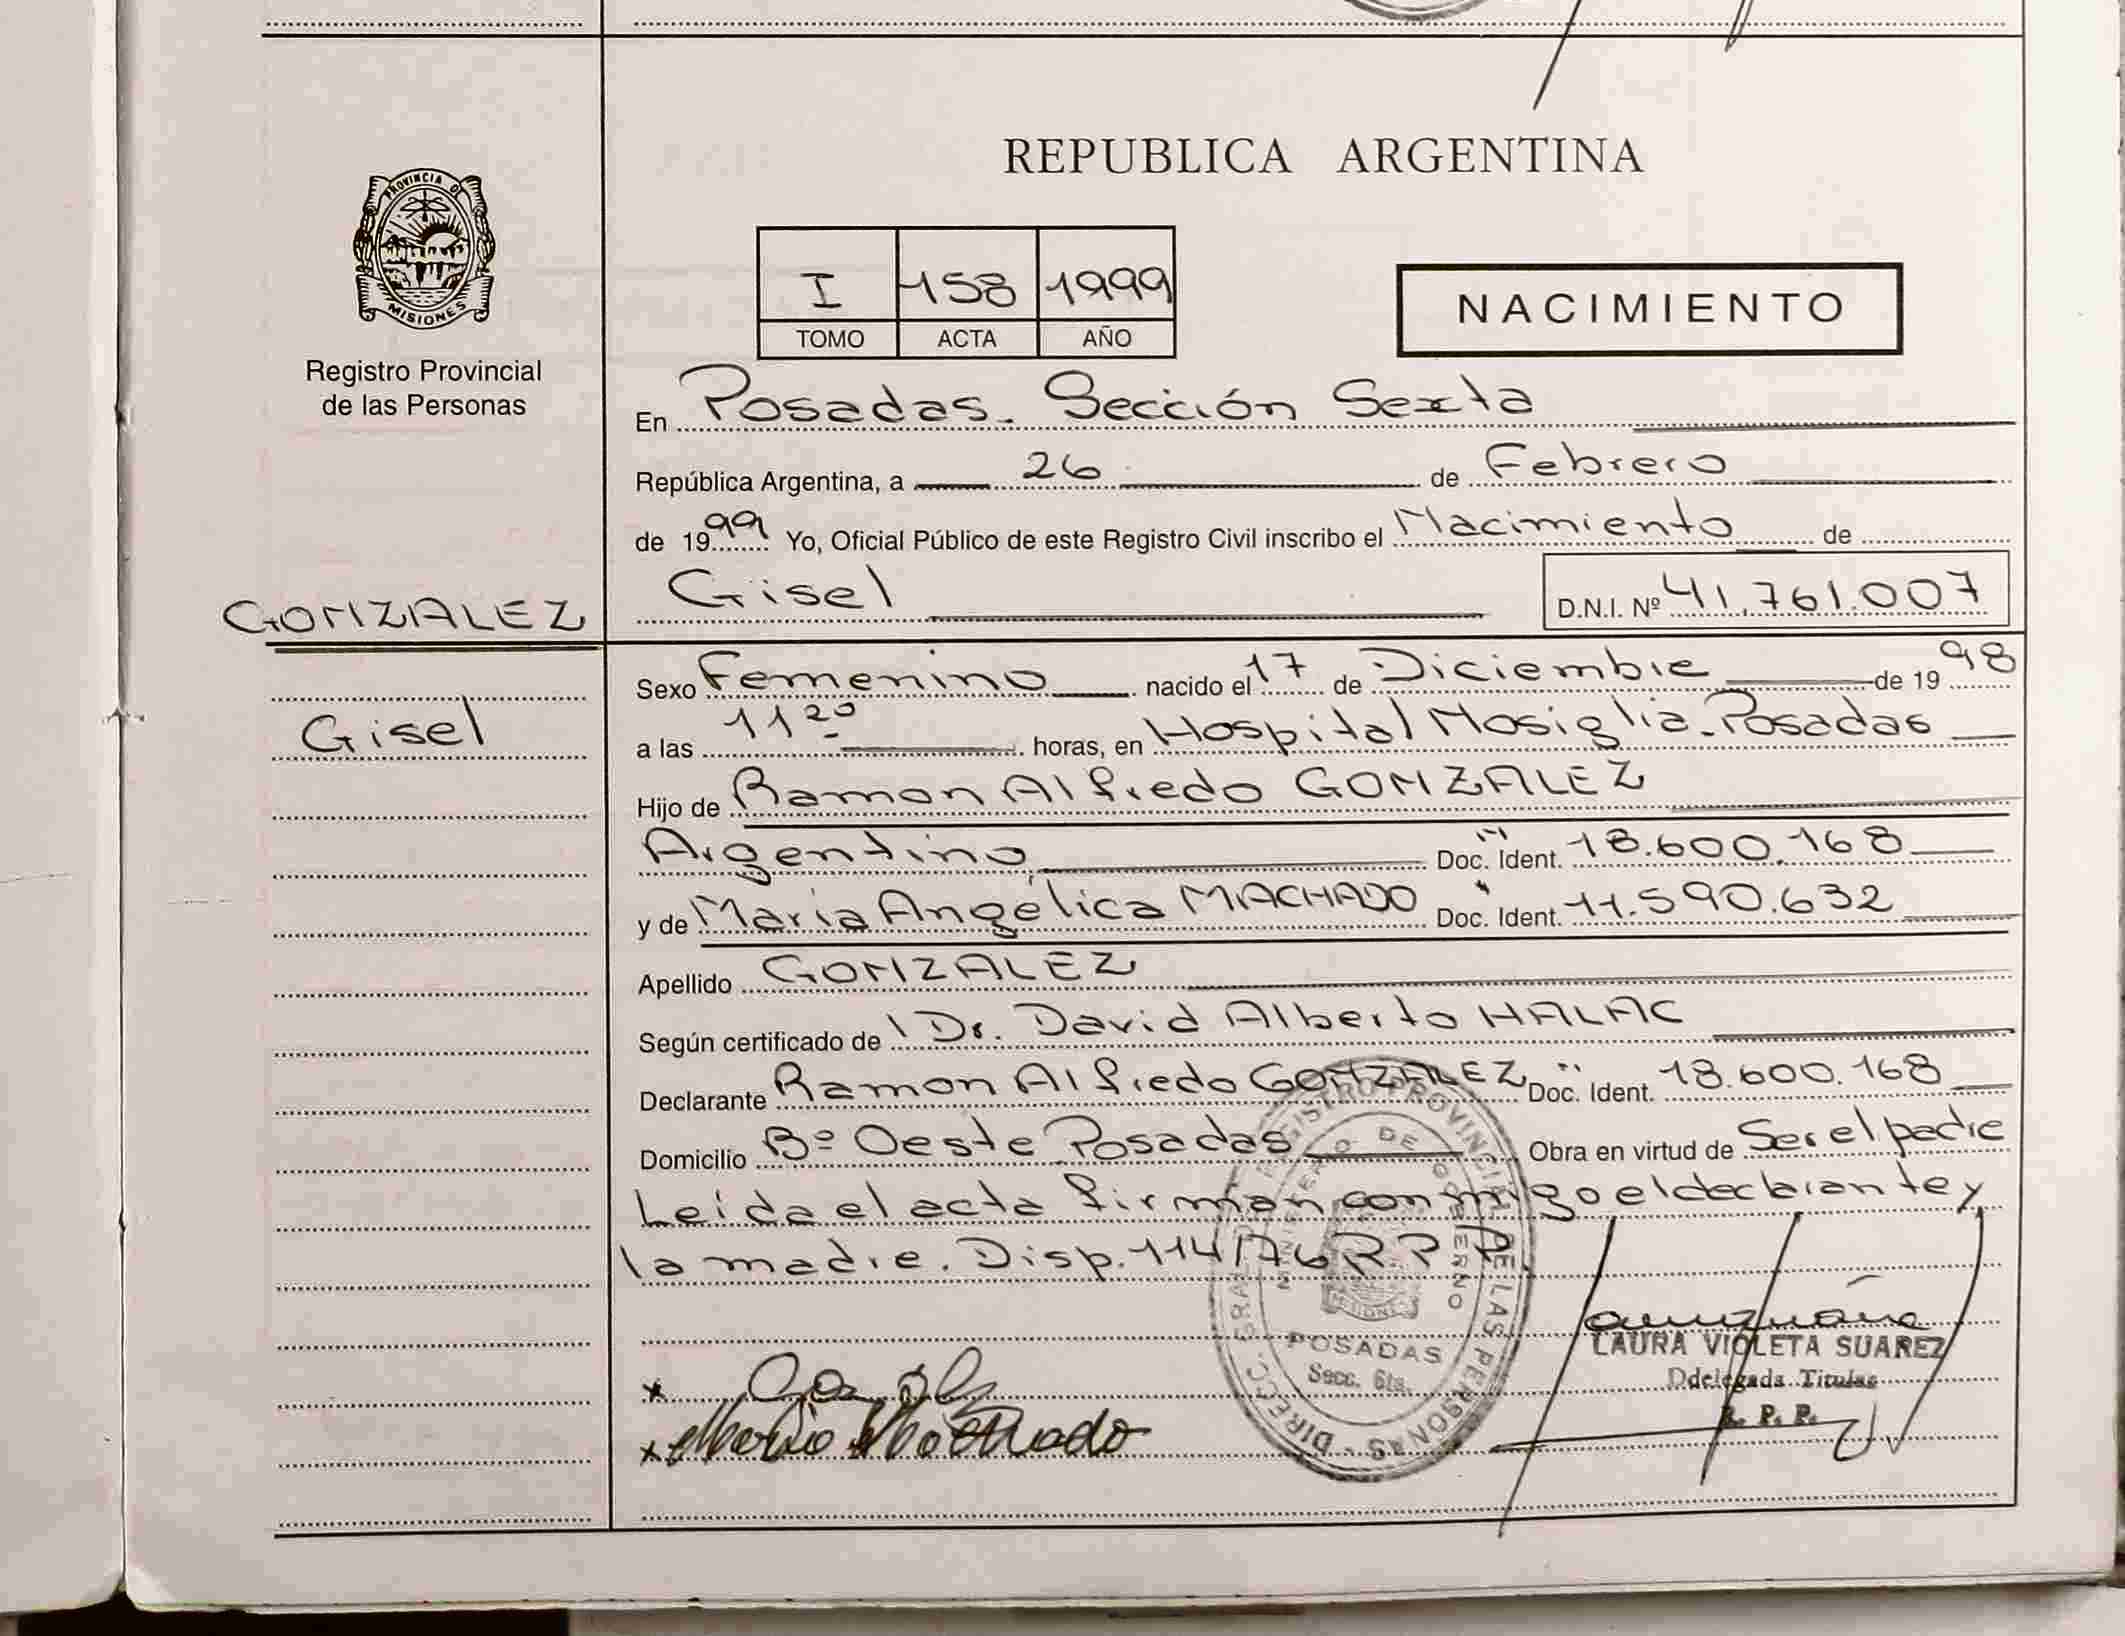 PROVINCIA DE
MISIONES
Registro Provincial
de las Personas
GONZALEZ
Gisel
REPUBLICA ARGENTINA
I 158 1999
TOMO ACTA AÑO
NACIMIENTO
En Posadas. Sección Sexta
República Argentina, a 26 de Febrero
de 1999 Yo, Oficial Público de este Registro Civil inscribo el Nacimiento de
Gisel D.N.I. Nº 41.761.007
Sexo Femenino nacido el 17 de Diciembre de 1998
a las 11 20 horas, en Hospital Mosiglia. Posadas
Hijo de Ramon Alfredo GONZALEZ
Argentino Doc. Ident. 18.600.168
y de María Angélica MACHADO Doc. Ident. 11.590.632
Apellido GONZALEZ
Según certificado de Dr. David Alberto HALAC
Declarante Ramon Alfredo GONZALEZ Doc. Ident. 18.600.168
Domicilio Bº Oeste Posadas Obra en virtud de Ser el padre
Leída el acta firman conmigo el declarante y
la madre. Disp. 114/76 R.P.P.
REGISTRO PROVINCIAL DE LAS PERSONAS
MINISTERIO DE GOBIERNO
POSADAS
Secc. 6ta.
LAURA VIOLETA SUAREZ
Ddelegada Titular
R. P. P.
x
x Maria Machado